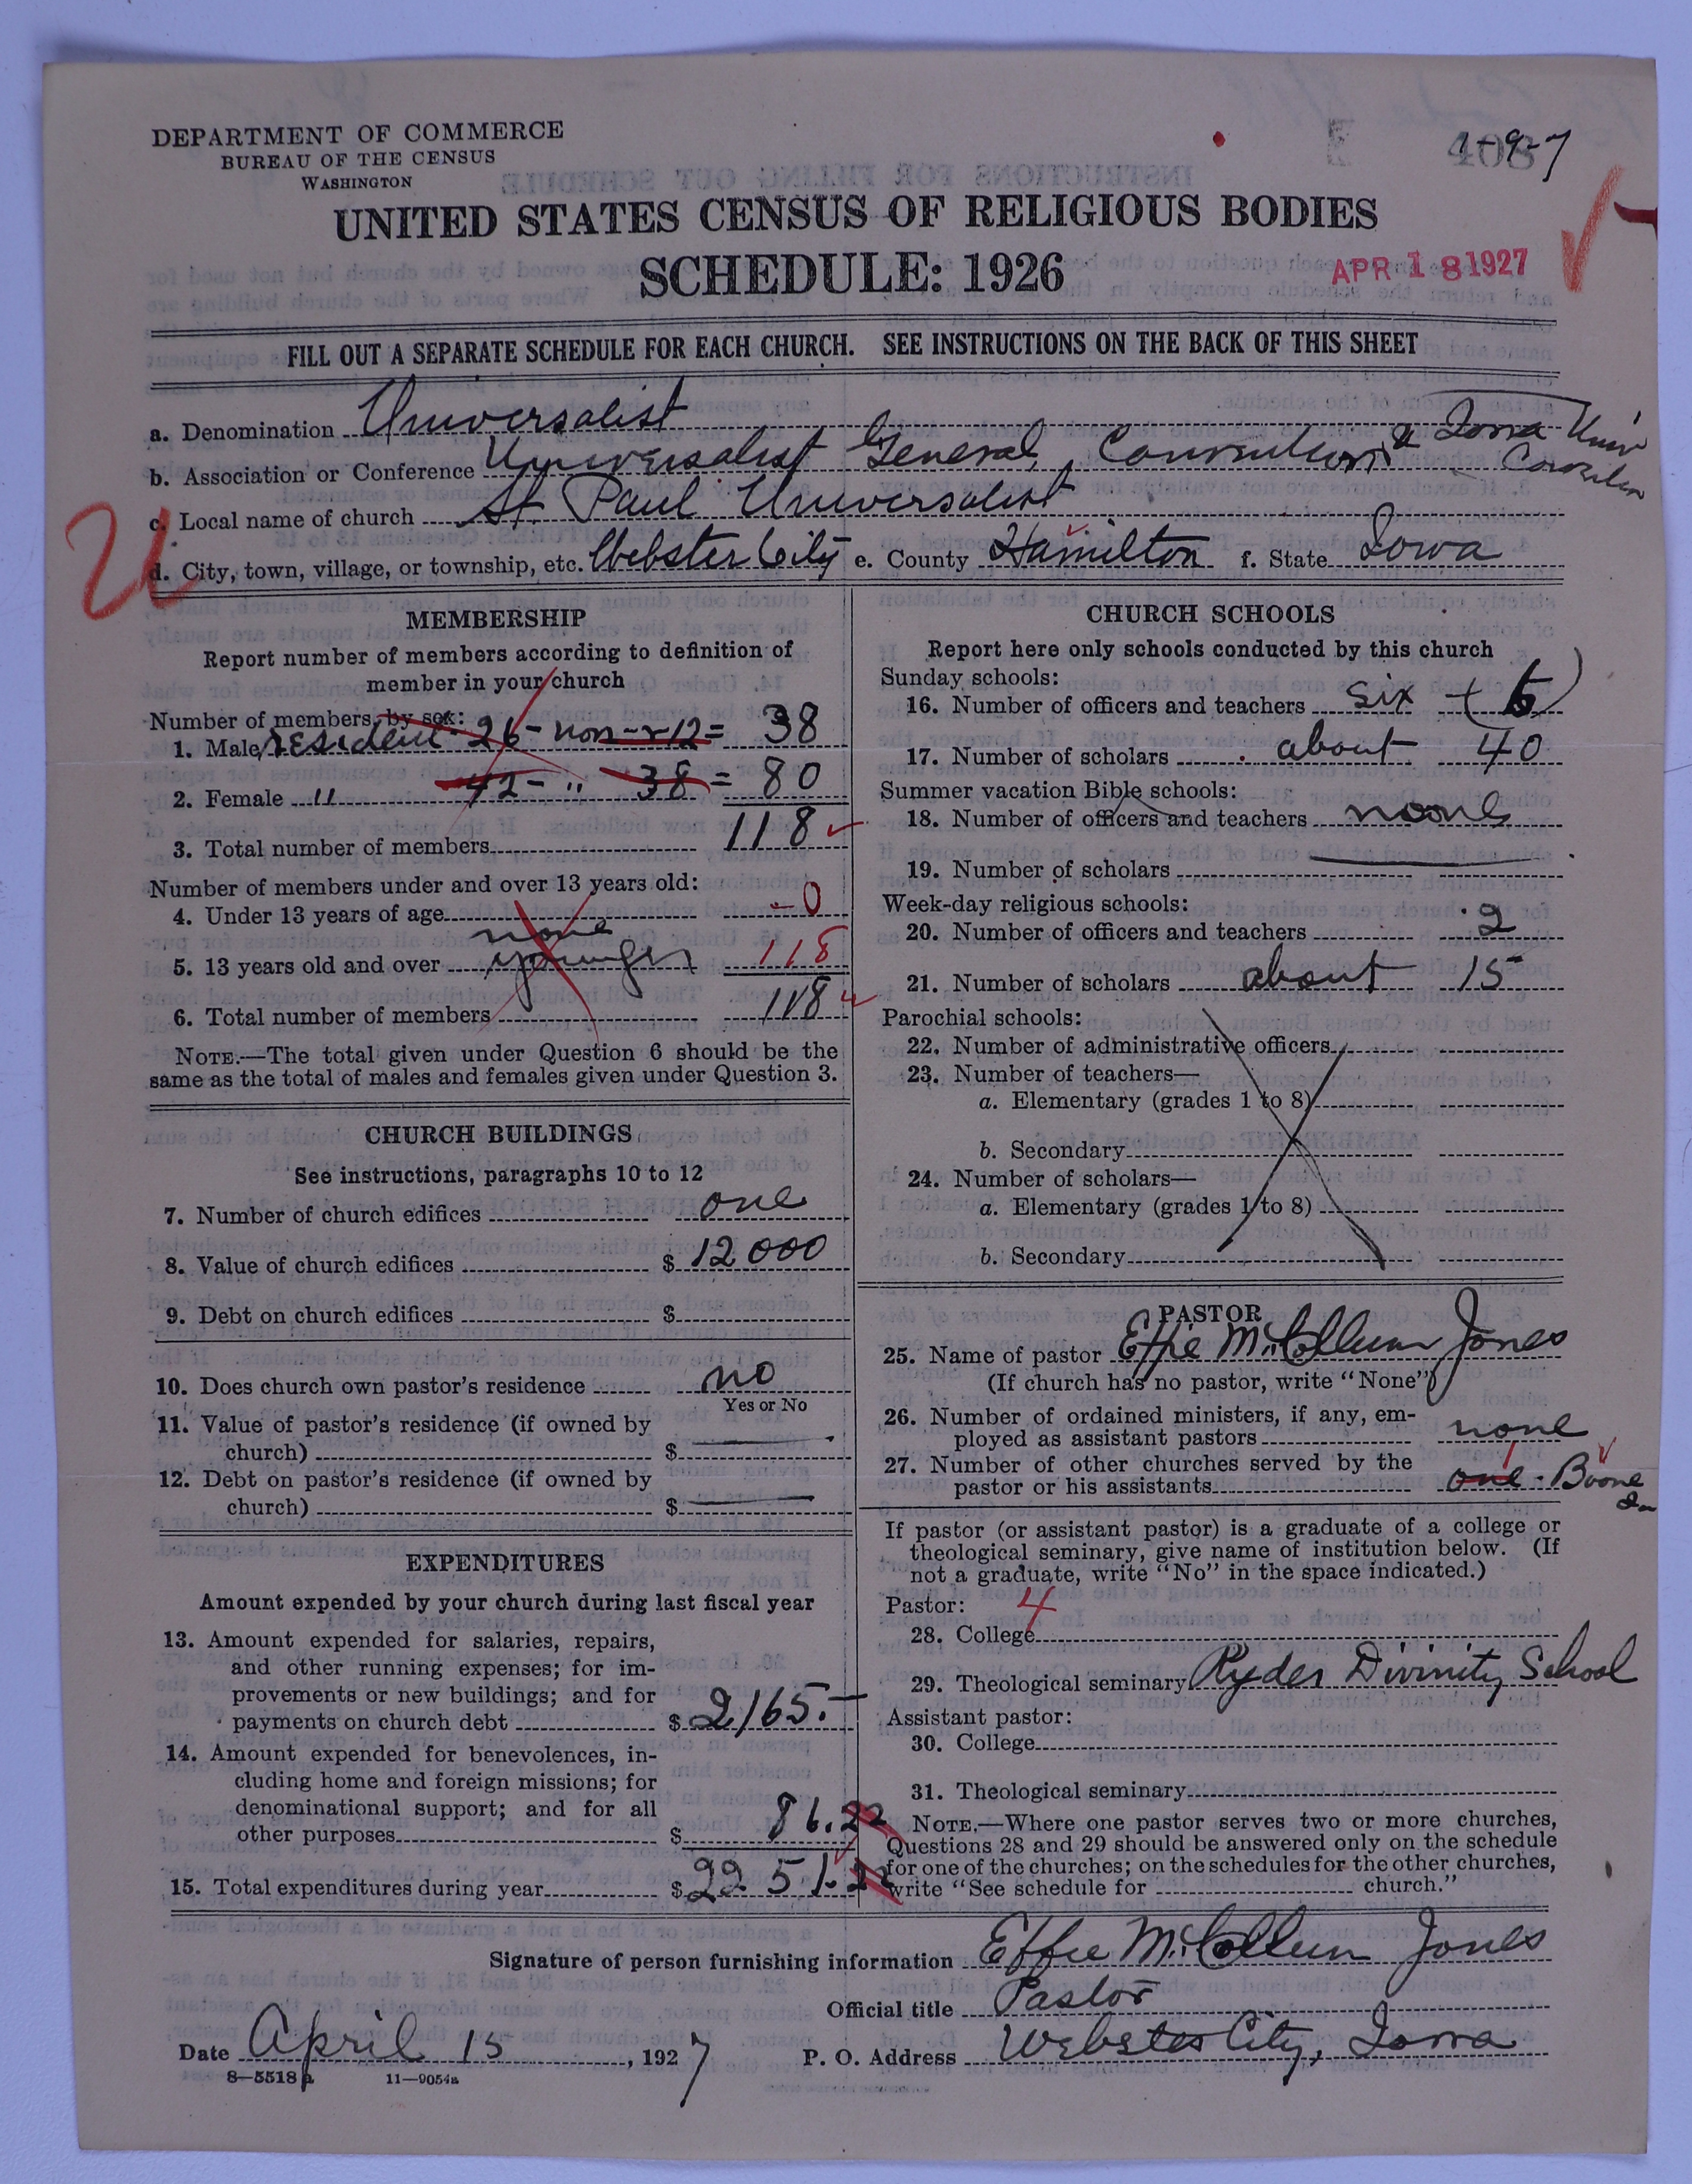 DEPARTMENT OF COMMERCE
BUREAU OF THE CENSUS
WASHINGTON
1-9-7
408
UNITED STATES CENSUS OF RELIGIOUS BODIES
SCHEDULE: 1926
APR 18 1927
FILL OUT A SEPARATE SCHEDULE FOR EACH CHURCH. SEE INSTRUCTIONS ON THE BACK OF THIS SHEET
a. Denomination Universalist
b. Association or Conference Universalist General Convention & Iowa Univ
c. Local name of church St. Paul Universalist
d. City, town, village, or township, etc. Webster City e. County Hamilton f. State Iowa
MEMBERSHIP
Report number of members according to definition of
member in your church
Number of members, by sex:
1. Male, resident - 26 - non-r 12 = 38
2. Female " 42 - " 38 = 80
3. Total number of members 118
Number of members under and over 13 years old:
4. Under 13 years of age - 0
none
5. 13 years old and over younger 118
6. Total number of members 118
NOTE.—The total given under Question 6 should be the
same as the total of males and females given under Question 3.
CHURCH BUILDINGS
See instructions, paragraphs 10 to 12
7. Number of church edifices one
8. Value of church edifices $ 12000
9. Debt on church edifices $
10. Does church own pastor's residence no
Yes or No
11. Value of pastor's residence (if owned by
church) $
12. Debt on pastor's residence (if owned by
church) $
EXPENDITURES
Amount expended by your church during last fiscal year
13. Amount expended for salaries, repairs,
and other running expenses; for im-
provements or new buildings; and for
payments on church debt $ 2165.-
14. Amount expended for benevolences, in-
cluding home and foreign missions; for
denominational support; and for all
other purposes $ 86.22
15. Total expenditures during year $ 2251.22
CHURCH SCHOOLS
Report here only schools conducted by this church
Sunday schools:
16. Number of officers and teachers six (6)
17. Number of scholars about 40
Summer vacation Bible schools:
18. Number of officers and teachers none
19. Number of scholars
Week-day religious schools:
20. Number of officers and teachers 2
21. Number of scholars about 15
Parochial schools:
22. Number of administrative officers
23. Number of teachers—
a. Elementary (grades 1 to 8)
b. Secondary
24. Number of scholars—
a. Elementary (grades 1 to 8)
b. Secondary
PASTOR
25. Name of pastor Effie McCollum Jones
(If church has no pastor, write "None")
26. Number of ordained ministers, if any, em-
ployed as assistant pastors none
27. Number of other churches served by the
pastor or his assistants one - Boone Ia
If pastor (or assistant pastor) is a graduate of a college or
theological seminary, give name of institution below. (If
not a graduate, write "No" in the space indicated.)
Pastor: 4
28. College
29. Theological seminary Ryder Divinity School
Assistant pastor:
30. College
31. Theological seminary
NOTE.—Where one pastor serves two or more churches,
Questions 28 and 29 should be answered only on the schedule
for one of the churches; on the schedules for the other churches,
write "See schedule for church."
Signature of person furnishing information Effie McCollum Jones
Official title Pastor
Date April 15, 1927 P. O. Address Webster City, Iowa
8—5518a 11—9054a